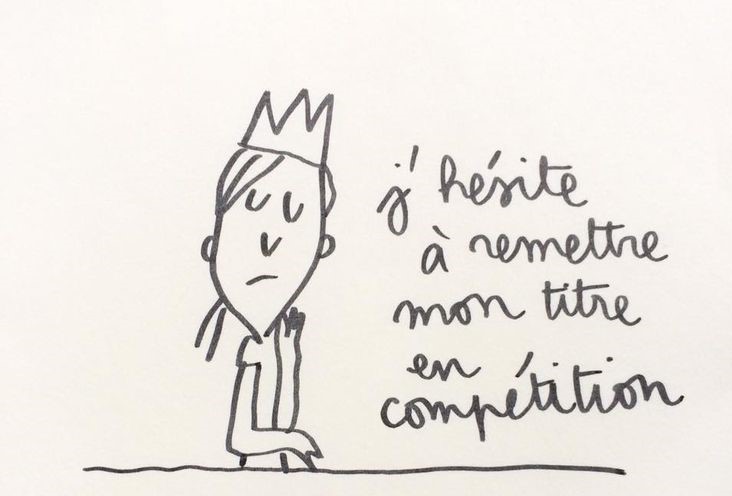 j'hésite
à remettre
mon titre
en
compétition